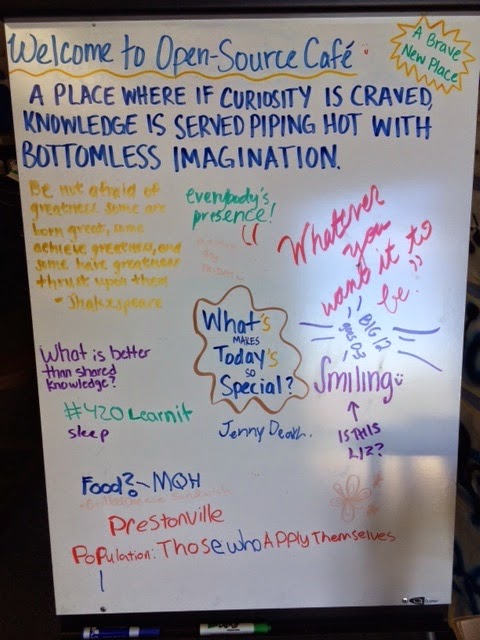 Welcome to Open-Source Café
A Brave
New Place
A PLACE WHERE IF CURIOSITY IS CRAVED,
KNOWLEDGE IS SERVED PIPING HOT WITH
BOTTOMLESS IMAGINATION.
Be not afraid of
greatness some are
born great, some
achieve greatness, and
some have greatness
thrust upon them
- Shakespeare
everybody's
presence!
Whatever
you
want it to
be!
What's
MAKES
Today's
SO
Special?
BIG 12
goes 0-3
Smiling
IS THIS
LIZ?
What is better
than shared
knowledge?
#420Learnit
sleep
Jenny Death.
Food? - MQH
Prestonville
Population: Those who Apply Themselves